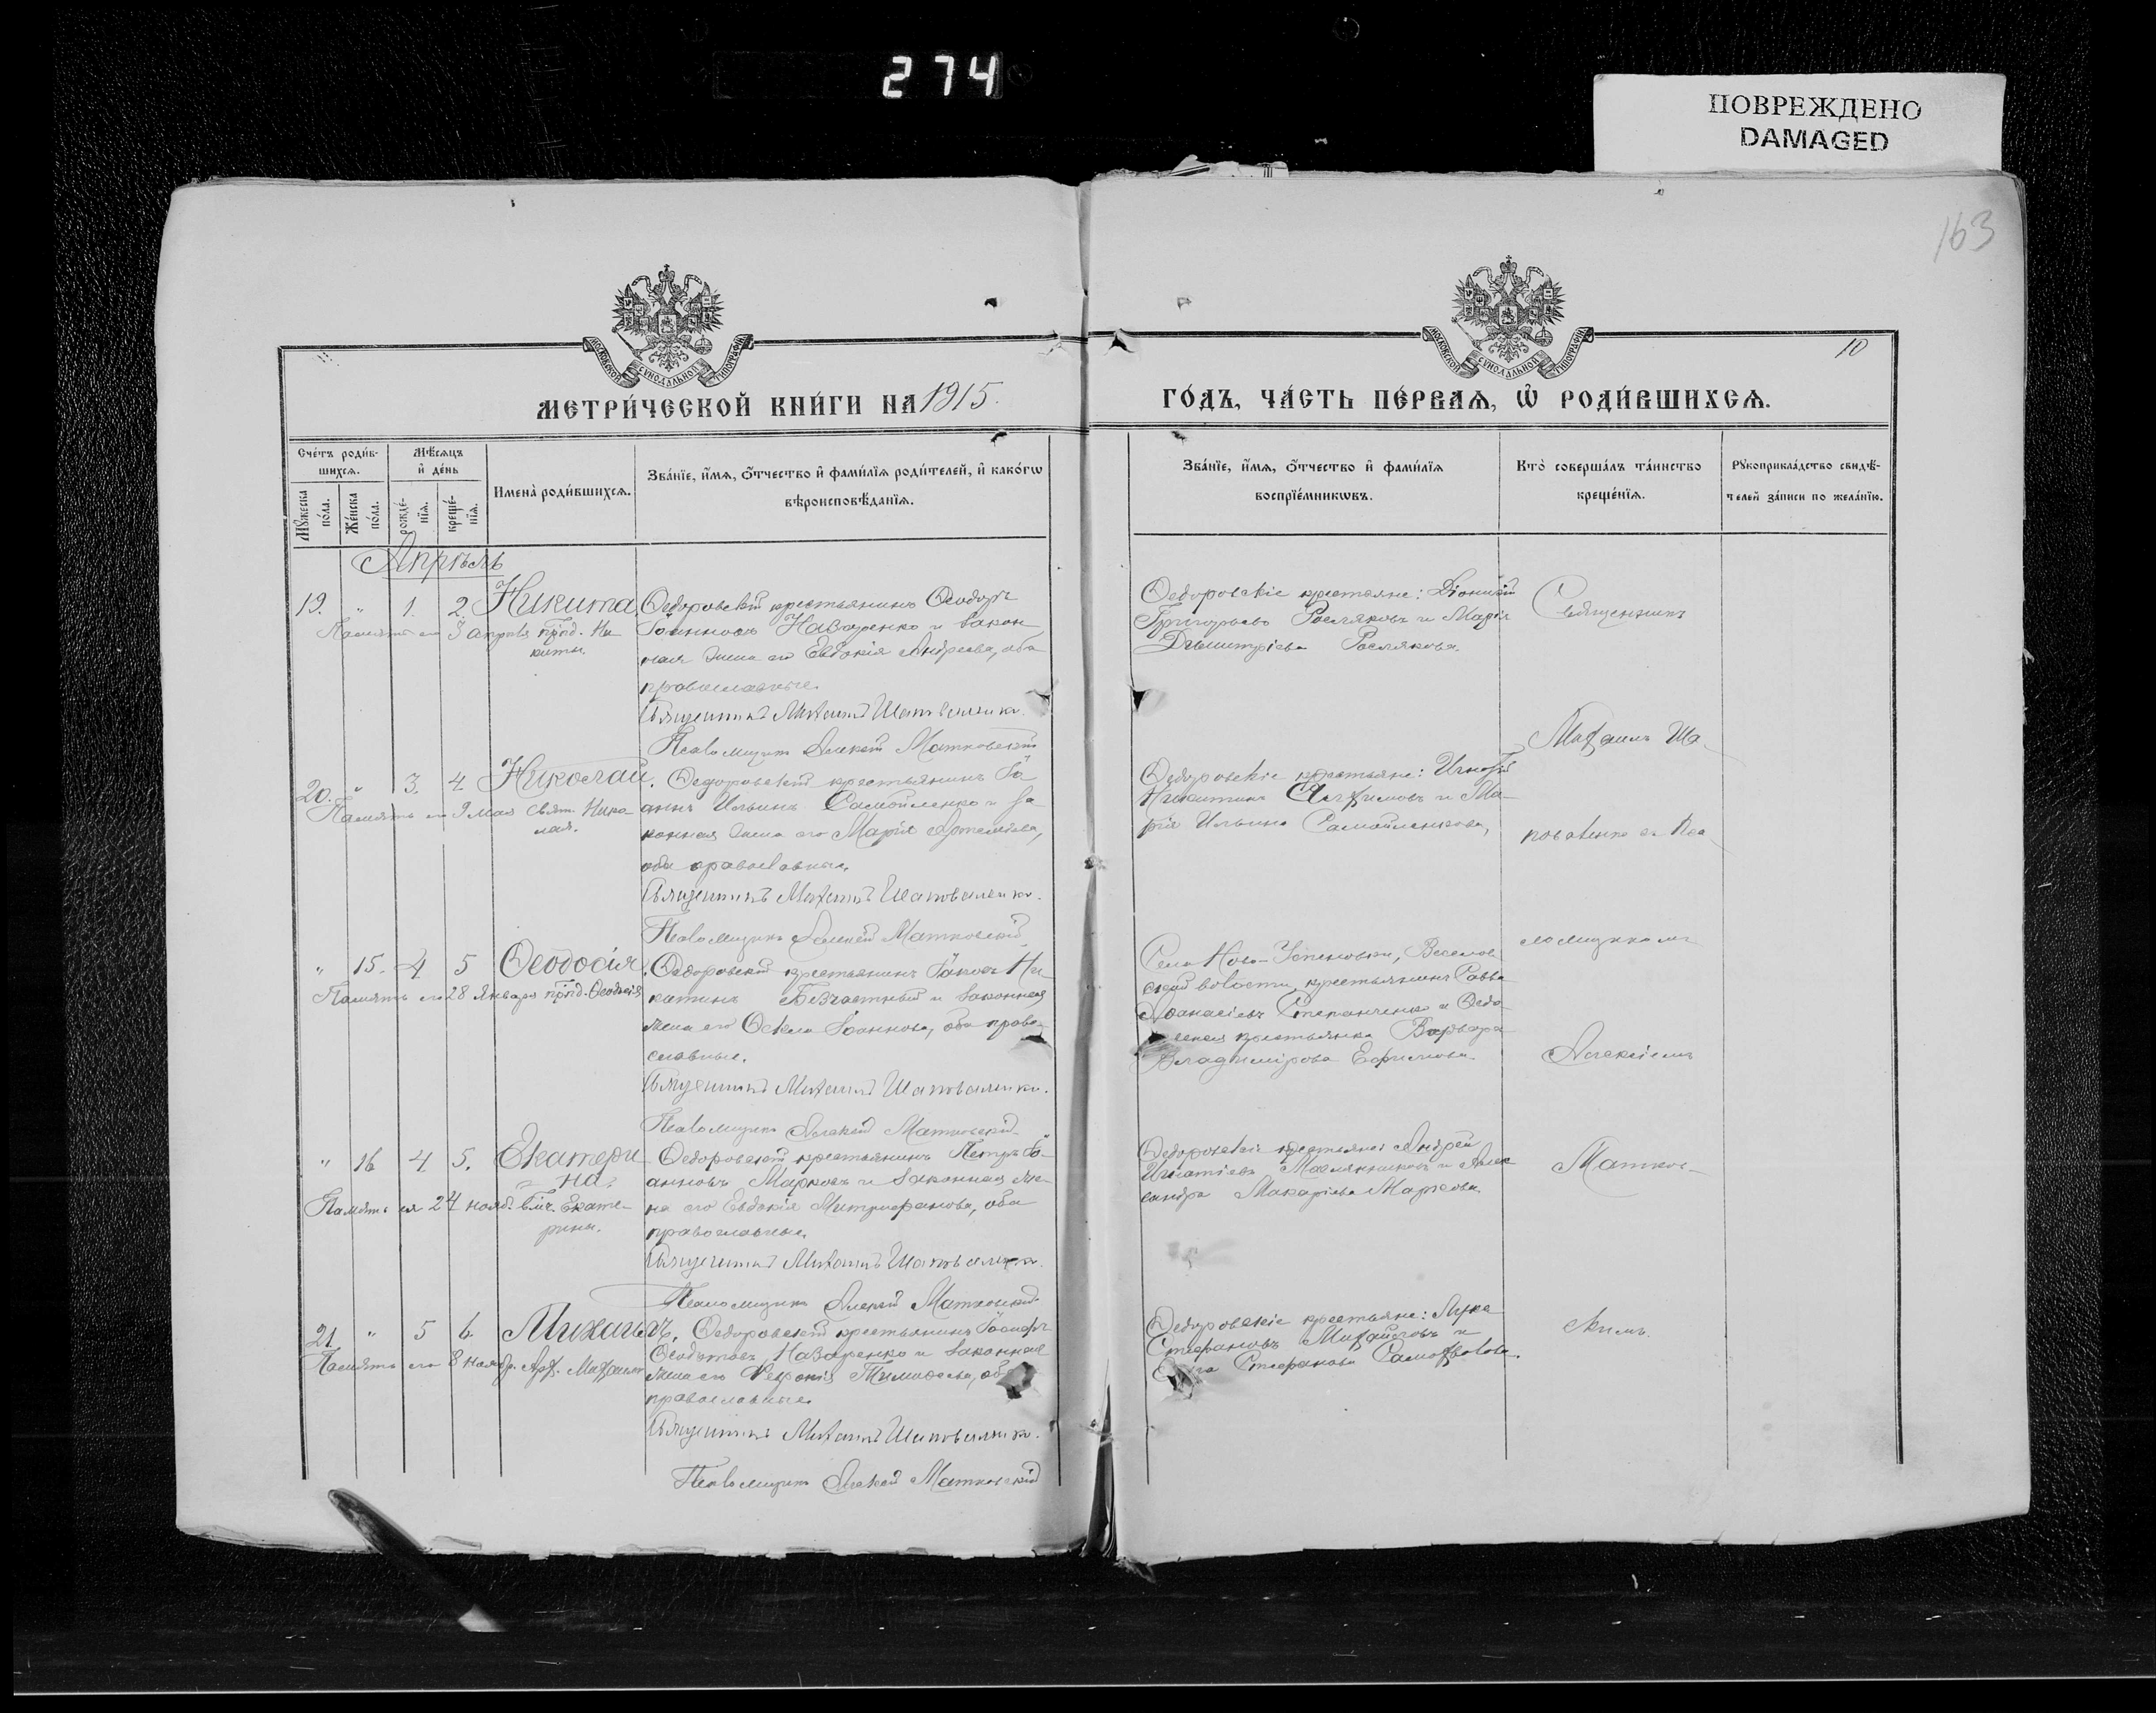 274
ПОВРЕЖДЕНО
DAMAGED
163
10
МОСКОВСКОЙ СѴНОДАЛЬНОЙ ТИПОГРАФІИ
МОСКОВСКОЙ СѴНОДАЛЬНОЙ ТИПОГРАФІИ
МЕТРИ́ЧЕСКОЙ КНИ́ГИ НА 1915.
ГО́ДЪ, ЧА́СТЬ ПЕ́РВАѦ, Ѡ҆ РОДИ́ВШИХСѦ.
Сче́тъ роди́в-
шихсѧ.
Мꙋ́жеска по́ла.
Же́нска по́ла.
Мѣ́сѧцъ
и҆ де́нь
рожде́-
нїѧ.
креще́-
нїѧ.
Имена̀ роди́вшихсѧ.
Зва́нїе, и҆́мѧ, ѻ҆́тчество и҆ фами́лїѧ роди́телей, и҆ како́гѡ
вѣроисповѣ́данїѧ.
Зва́нїе, и҆́мѧ, ѻ҆́тчество и҆ фами́лїѧ
воспрїе́мникѡвъ.
Кто̀ соверша́лъ та́инство
креще́нїѧ.
Рꙋкоприкла́дство свидѣ́-
телей за́писи по жела́нїю.
Апрѣль
19. " 1. 2. Никита.
Память его 3 апрѣля прпд. Ни-
киты.
Ѳедоровскій крестьянинъ Ѳеодоръ
Іоанновъ Назаренко и закон
ная жена его Евдокія Андреева, оба
православные.
Священникъ Михаилъ Шаповаленко.
Псаломщикъ Алексій Матковскій
Ѳедоровскіе крестьяне: Діонисій
Григорьевъ Росляковъ и Марія
Димитріева Рослякова.
Священникъ
20. " 3. 4 Николай.
Память его 9 мая Свят. Нико-
лая.
Ѳедоровскій крестьянинъ Іо
аннъ Ильинъ Самойленко и за
конная жена его Марія Артемьева,
оба православные.
Священникъ Михаилъ Шаповаленко.
Псаломщикъ Алексій Матковскій
Ѳедоровскіе крестьяне: Игнатій
Никитинъ и Ма-
рія Ильина Самойленкова,
Михаилъ Ша-
поваленко съ Пса
ломщикомъ
" 15. 4 5 Ѳеодосія.
Память ея 28 Января прпд. Ѳеодосія
Ѳедоровскій крестьянинъ Іаковъ Ни
китинъ Безчастный и законная
жена его Ѳекла Іоаннова, оба право-
славные.
Священникъ Михаилъ Шаповаленко.
Псаломщикъ Алексій Матковскій
Села Ново-Успеновки, Веселов
ской волости, крестьянинъ Савва
Аѳанасіевъ Степанченко и Ѳедо
ская крестьянка Варвара
Владимірова Ефимова.
Алексіемъ
" 16 4 5. Екатери
на.
Память ея 24 нояб. Влмч. Екате-
рины.
Ѳедоровскій крестьянинъ Петръ Іо-
анновъ Марковъ и законная же-
на его Евдокія Митрофанова, оба
православные.
Священникъ Михаилъ Шаповаленко.
Псаломщикъ Алексій Матковскій
Ѳедоровскіе крестьяне: Андрей
Игнатіевъ Маслянниковъ и Алек
сандра Макаріева Маркова.
Матков-
21. " 5 6. Михаилъ.
Память его 8 нояб. Арх. Михаила
Ѳедоровскій крестьянинъ Іосифъ
Ѳеодотовъ Назаренко и законная
жена его Ѳевронія Тимоѳеева, об
православные.
Священникъ Михаилъ Шаповаленко.
Псаломщикъ Алексій Матковскій
Ѳедоровскіе крестьяне: Лука
Стефановъ Михайловъ и
Стефанова
скимъ.